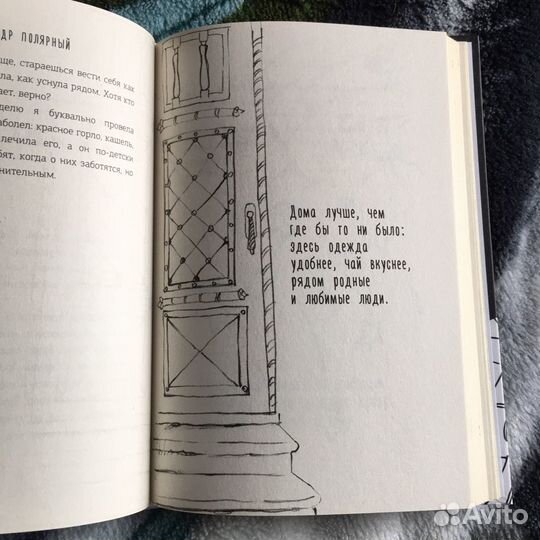 ДР ПОЛЯРНЫЙ
ще, стараешься вести себя как
ла, как уснула рядом. Хотя кто
ает, верно?
делю я буквально провела
аболел: красное горло, кашель,
лечила его, а он по-детски
бят, когда о них заботятся, но
нительным.
Дома лучше, чем
где бы то ни было:
здесь одежда
удобнее, чай вкуснее,
рядом родные
и любимые люди.
Avito